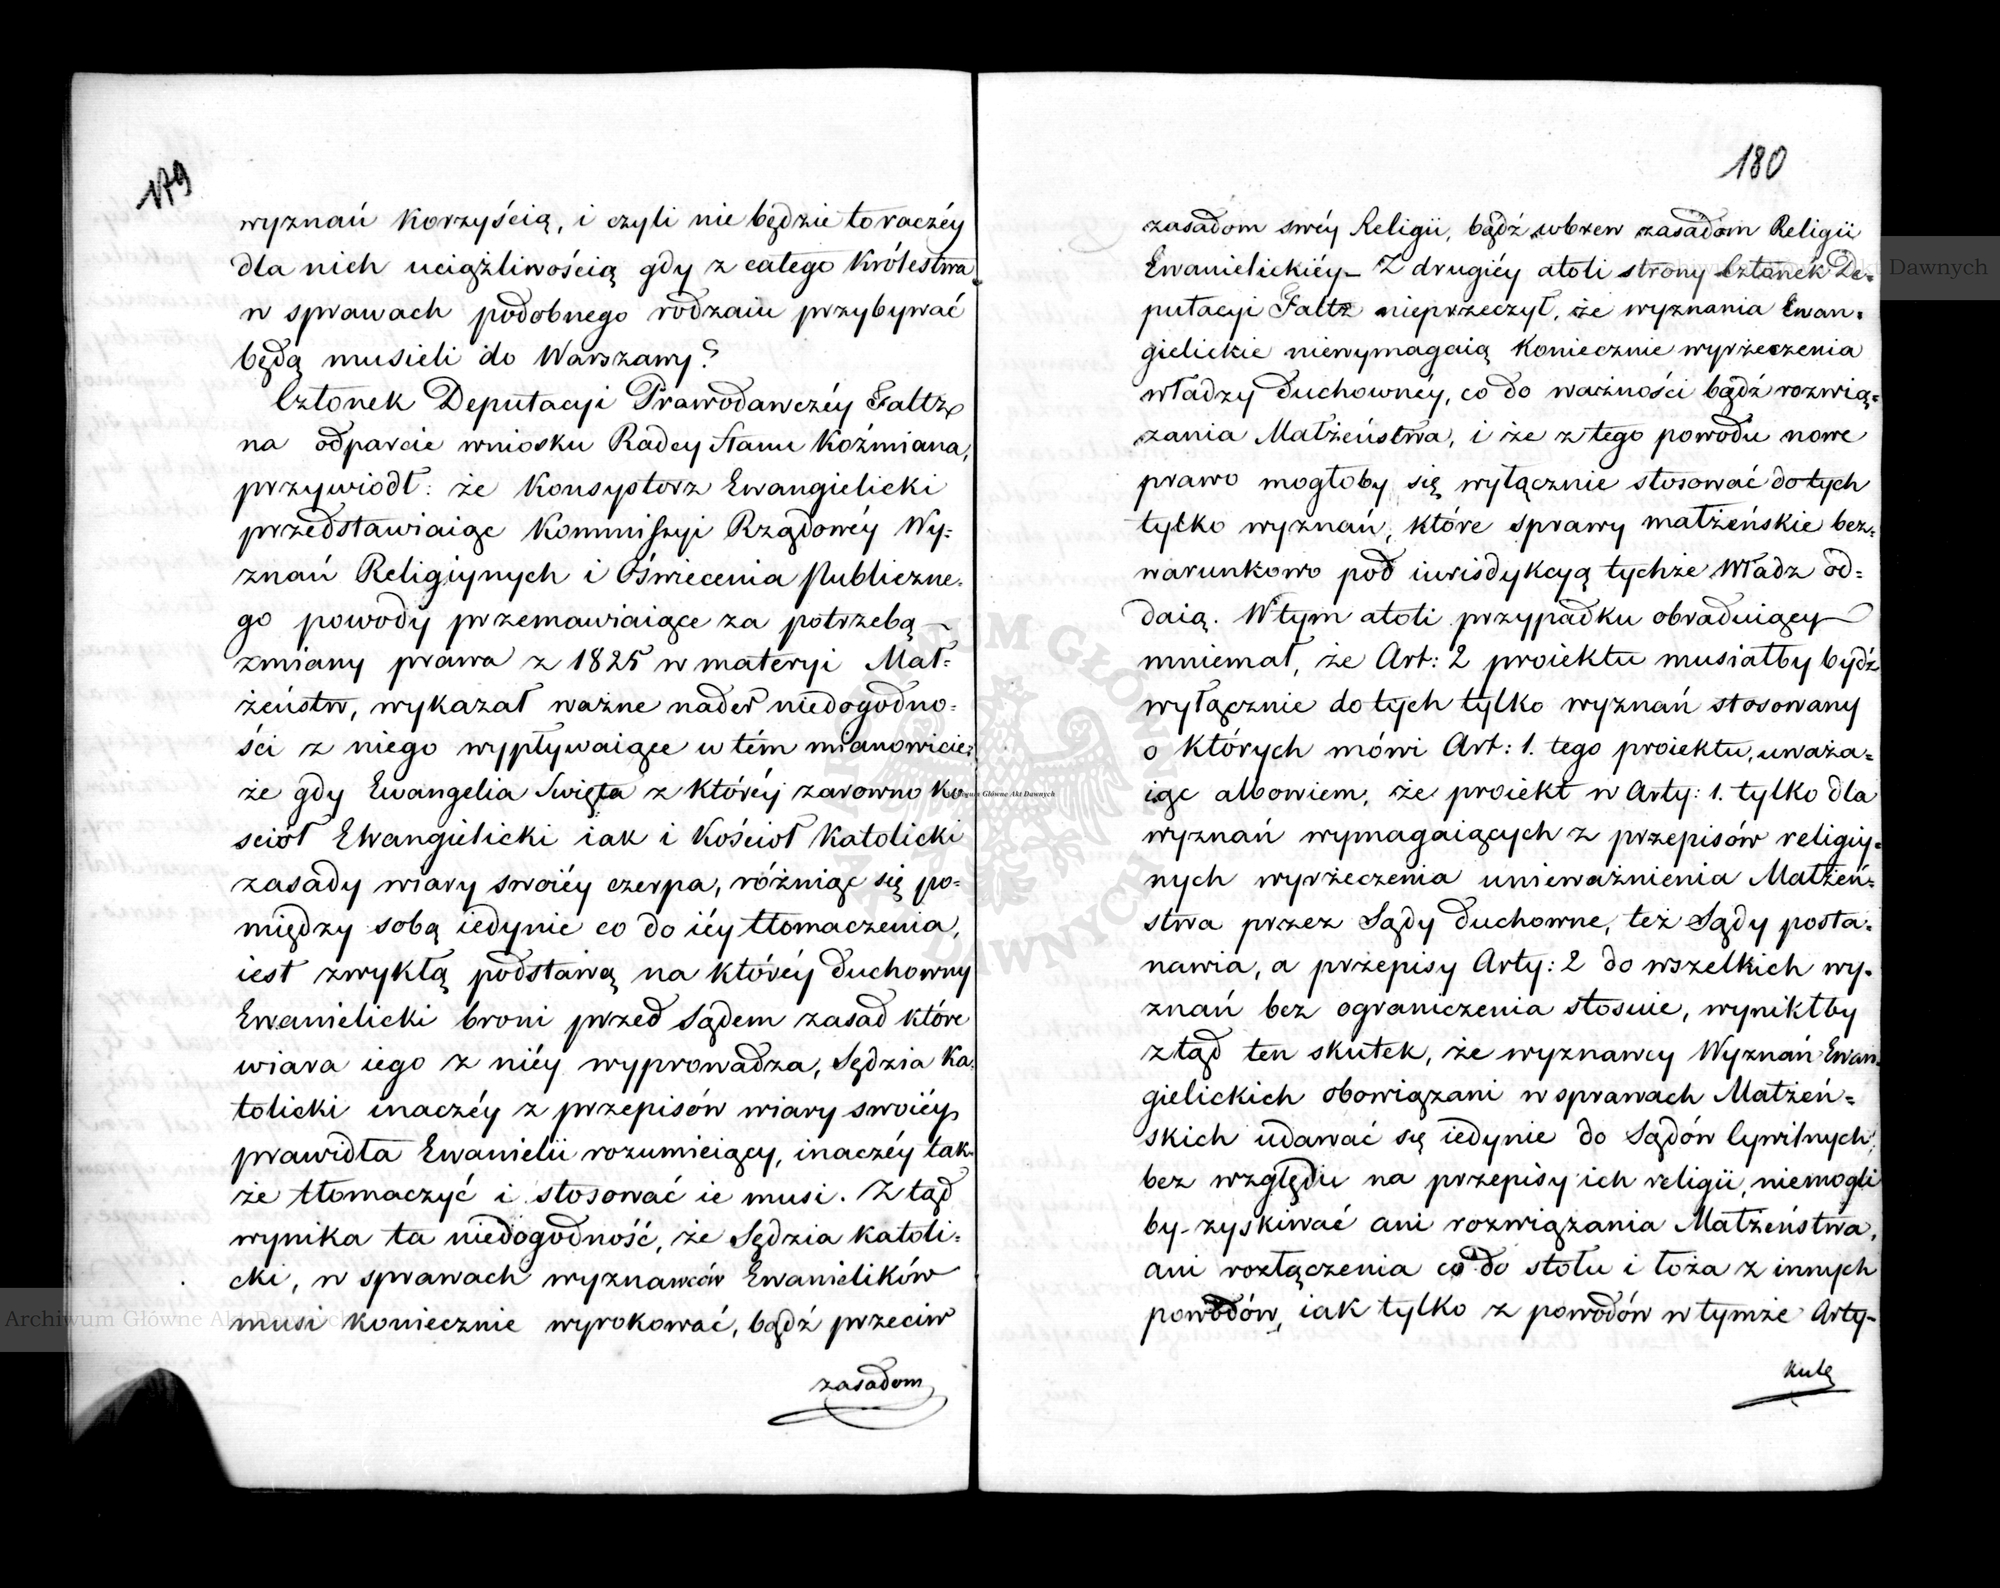 179
wyznań korzyścią, i czyli nie będzie to raczéy
dla nich uciążliwością gdy z całego Królestwa
w sprawach podobnego rodzaiu przybywać
będą musieli do Warszawy?
Członek Deputacyi Prawodawczéy Faltz
na odparcie wniosku Radcy Stanu Koźmiana,
przywiódł: że Konsystorz Ewangielicki
przedstawiaiąc Kommissyi Rządowéy Wy-
znań Religiynych i Oświecenia Publiczne-
go powody przemawiaiące za potrzebą
zmiany prawa z 1825 w materyi Mał-
żeństw, wykazał ważne nader niedogodno-
ści z niego wypływaiące w tém mianowicie:
że gdy Ewangelia Święta z któréy zarowno Ko
sciół Ewangielicki iak i Kościoł Katolicki
zasady wiary swoiéy czerpa, różniąc się po-
między sobą iedynie co do iéy tłomaczenia,
iest zwykłą podstawą na któréy duchowny
Ewanielicki broni przed Sądem zasad które
wiara iego z niéy wyprowadza, Sędzia Ka-
tolicki inaczéy z przepisów wiary swoiéy
prawidła Ewanielii rozumieiący, inaczéy tak-
że tłomaczyć i stosować ie musi. Z tąd
wynika ta niedogodność, że Sędzia Katoli-
cki, w sprawach wyznawców Ewanielików
musi koniecznie wyrokować, bądź przeciw
zasadom
180
zasadom swéy Religii, bądź wbrew zasadom Religii
Ewanielickiéy – Z drugiéy atoli strony Członek De-
putacyi Faltz nieprzeczył, że wyznania Ewan-
gielickie niewymagaią koniecznie wyrzeczenia
władzy duchownéy, co do ważności bądź rozwią-
zania Małżeństwa, i że z tego powodu nowe
prawo mogłoby się wyłącznie stosować do tych
tylko wyznań, które sprawy małżeńskie bez-
warunkowo pod iurisdykcyą tychże Władz od-
daią. W tym atoli przypadku obraduiący
mniemał, że Art: 2 proiektu musiałby bydź
wyłącznie do tych tylko wyznań stosowany
o których mówi Art: 1. tego proiektu, uważa-
iąc albowiem, że proiekt w Arty: 1. tylko dla
wyznań wymagaiących z przepisów religiy-
nych wyrzeczenia unieważnienia Małżeń-
stwa przez Sądy duchowne, też Sądy posta-
nawia, a przepisy Arty: 2 do wszelkich wy-
znań bez ograniczenia stosuie, wynikłby
ztąd ten skutek, że wyznawcy Wyznań Ewan-
gielickich obowiązani w sprawach Małżeń-
skich udawać się iedynie do Sądów Cywilnych
bez względu na przepisy ich religii, niemogli
by zyskiwać ani rozwiązania Małżeństwa,
ani rozłączenia co do stołu i łoża z innych
powodów, iak tylko z powodów w tymże Arty-
kule
Archiwum Główne Akt Dawnych